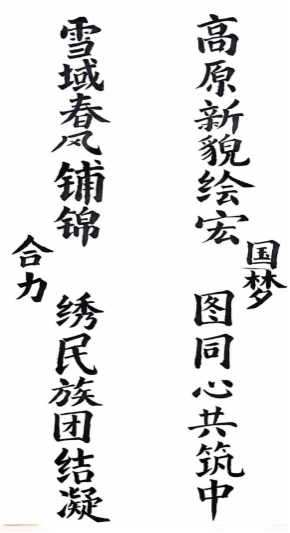 高原新貌绘宏图同心共筑中
国梦
雪域春风铺锦绣民族团结凝
合力